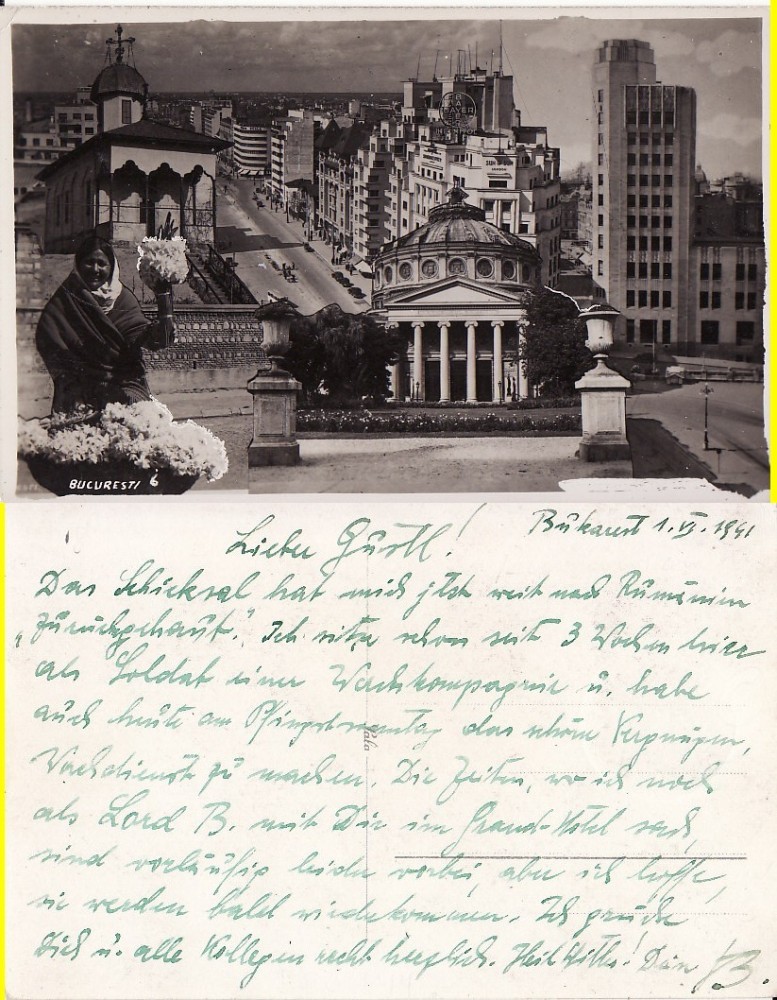 BAYER
BUCURESTI 6
Bukarest 1.VI.1941
Lieber Gustl!
Das Schicksal hat mich jetzt weit nach Rumänien
„zurückgehaut". Ich sitze schon seit 3 Wochen hier
als Soldat einer Wachkompagnie u. habe
auch heute am Pfingstsonntag das schöne Vergnügen,
Wachdienst zu machen. Die Zeiten, wo ich noch
als Lord B. mit Dir im Grand-Hotel saß,
sind vorläufig leider vorbei, aber ich hoffe,
sie werden bald wiederkommen. Ich grüße
Dich u. alle Kollegen recht herzlich. Heil Hitler! Dein B.